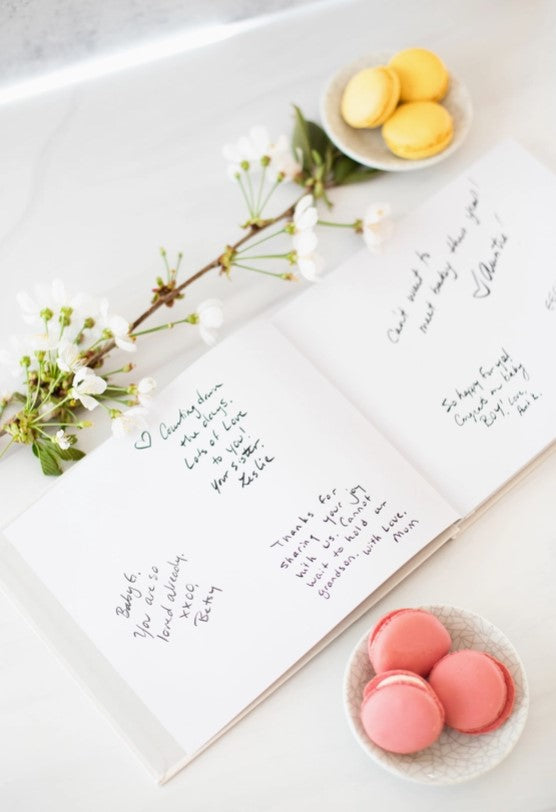 Counting down
the days.
Lots of Love
to you!
Your sister.
Leslie
Baby G,
You are so
loved already.
xxoo,
Betsy
Thanks for
sharing your joy
with us. Cannot
wait to hold our
grandson. With Love,
Mom
Can't wait to
meet baby this year!
Auntie!
So happy for ya!
Congrats on baby
Boy! Love,